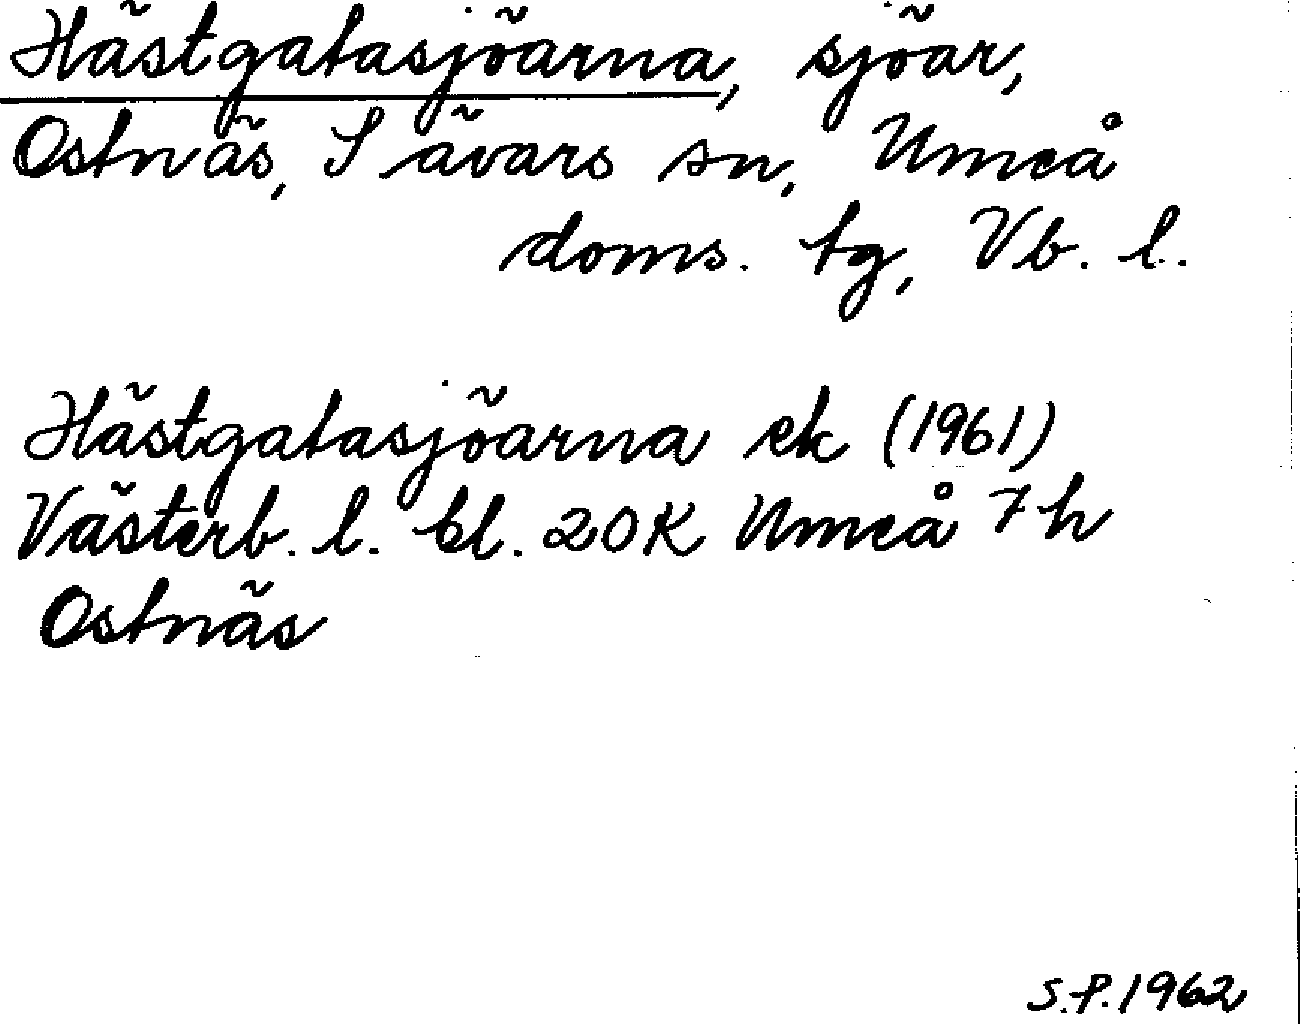 Hästgatasjöarna, sjöar,
Ostnäs, Sävars sn, Umeå
doms. tg, Vb. l.
Hästgatasjöarna ek (1961)
Västerb. l. bl. 20K Umeå 7h
Ostnäs
S.P. 1962